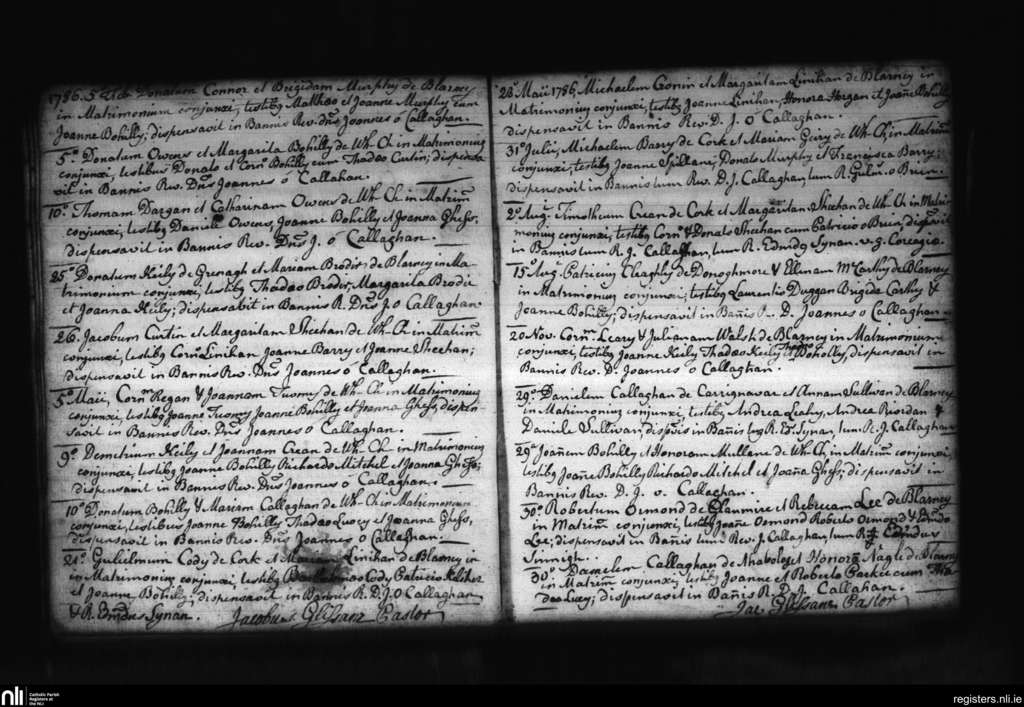 1786. 5 Feb. Donatum Connor et Brigidam Murphy de Blarney
in Matrimonium conjunxi, testibq Mathao et Joanne Murphy cum
Joanne Bohilly; dispensavit in Bannis Rev. Dñs Joannes ó Callaghan.
5º. Donatum Owens et Margarita Bohilly de Wh. Ch. in Matrimoniuq
conjunxi, testibus Donato et Cornº Bohilly cum Thadao Curtin; dispensa
vit in Bannis Rev. Dñs Joannes ó Callahan.
10º. Thomam Dargan et Catharinam Owens de Wh. Ch. in Matrim̃
conjunxi, testibq Daniele Owens, Joanne Bohilly et Joanna Ghess,
dispensavit in Bannis Rev. Dñs J. ó Callaghan.
25º Donatum Keily de Grenagh et Mariam Brodir de Blarney in Ma
trimonium conjunxi, testibq Thadao Broder, Margarita Brodir
et Joanna Keily; dispensabit in Bannis R. Dñs J. O Callaghan
26. Jacobum Curtin et Margaritam Sheehan de Wh. Ch. in Matrim̃
conjunxi, testibq Cornº Linihan Joanne Barry et Joanne Sheehan;
dispensavit in Bannis Rev. Dñs Joannes ó Callaghan.
5º Maii, Cornm Regan & Joannam Tuomy de Wh. Ch. in Matrimoniuq
conjunxi, testibq Joanne Tuomy Joanne Bohilly et Joanna Ghess, dispen-
savit in Bannis Rev. Dñs Joannes o Callaghan.
9º. Demetrium Keily et Joannam Crean de Wh. Ch. in Matrimoniuq
conjunxi, testibq Joanne Bohilly Richardo Mitchel et Joanna Ghess;
dispensavit in Bannis Rev. Dñs Joannes ó Callaghan.
10º Donatum Bohilly & Mariam Callaghan de Wh. Ch. in Matrimonium
conjunxi, testibus Joanne Bohilly Thadao Lucey et Joanna Ghess,
dispensavit in Bannis Rev. Dñs Joannes o Callaghan.
21º Gulielmum Cody de Cork et Linihan de Blarney in
in Matrimoniuq conjunxi, testibq Cody Patricio
et Joanne Bohilly; dispensavit in Bannis R. D. J. O Callaghan
& R. Emdus Synan. Jacobus Glissane Pastor
28º Maii 1786 Michaelem Cronin et Margaritam Linihan de Blarney in
Matrimoniuq conjunxi, testibq Joanne Linihan, Honora Horgan et Joañe Bohilly
dispensavit in Bannis Rev. D. J. O Callaghan.
31º Julii, Michaelem Barry de Cork et Mariam Geiry de Wh. Ch, in Matrim̃
conjunxi, testibq Joanne Spillane, Donato Murphy et Francisca Barry;
dispensavit in Bannis tum Rev. D. J. Callaghan, tum R. Gulm. o Brien.
2º Aug. Timotheum Crean de Cork et Margaritan Sheehan de Wh. Ch in Matri
monium conjunxi, testibq Cornº & Donato Sheehan cum Patricio o Brien, dispavit
in Bannis tum R. J. Callaghan, tum R. Edmdq Synan. v. g. Corcagia.
15º Aug. Patricium Claghly de Donoghmore & Ellenam McCarthy de Blarney
in Matrimoniuq conjunxi; testibq Laurentio Duggan Brigida Carthy &
Joanne Bohilly; dispensavit in Bañis R. D. Joannes o Callaghan
20 Nov. Cornm Leary & Julianam Walsh de Blarney in Matrimonium
conjunxi, testibq Joanne Keily Thadao Keily Thadao Boholly, dispensavit in
Bannis Rev. D. Joannes O Callaghan.
29º. Danielem Callaghan de Carrignavar et Annam Sullivan de Blarney
in Matrimoniuq conjunxi, testibq Andrea Leahy, Andrea Riordan &
Daniele Sullivan, dispavit in Bañis tuq R. Ed. Synan, tum R. J. Callaghan
29º Joañem Bohilly et Honoram Mullane de Wh. Ch, in Matrim̃ conjunxi
testibq Joañe Bohilly Richardo Mitchel et Joaña Ghess; dispensavit in
Bannis Rev. D. J. o. Callaghan.
30º. Robertum Ormond de Glanmire et Rebeccam Lee de Blarney
in Matrim̃ conjunxi, testibq Joañe Ormond Roberto Ormond &
Lee; dispensavit in Bañis tum Rev. J. Callaghan, tum R.
Sinnigh.
30º. Danielem Callaghan de et Honora Nagle de Blarny
in Matrim̃ conjunxi, testibq Joanne et Roberto cum Tha
deo Lucy; dispensavit in Bañis R. D. J. Callahan.
Jac. Glissane Pastor
nli Catholic Parish
Registers at
the NLI
registers.nli.ie